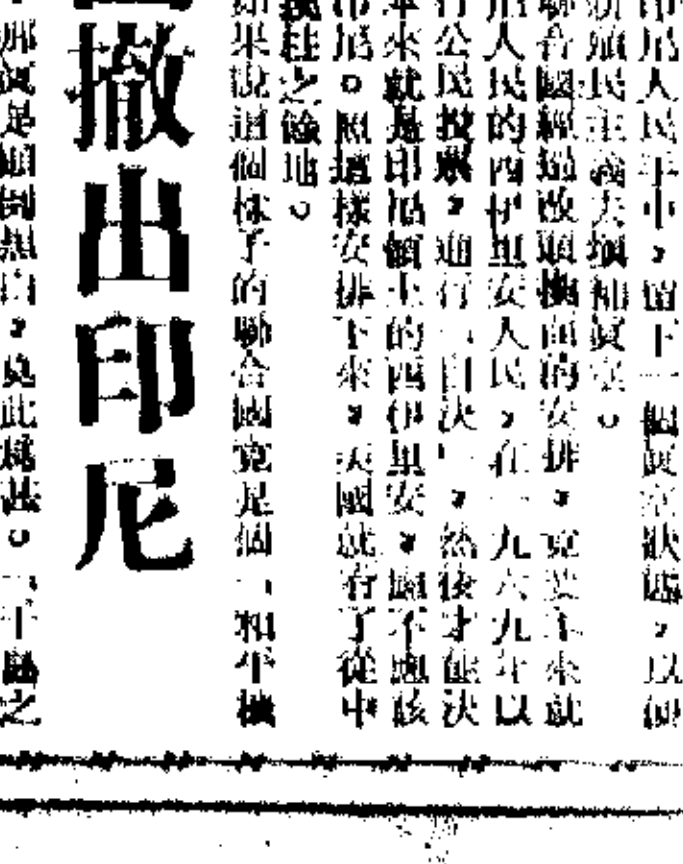 印尼人民手中，留下一個眞空狀態，以便
新殖民主義去塡補眞空。
聯合國經過改頭換面的安排，竟要本來就
尼人民的西伊里安人民，在一九六九年以
行公民投票，進行「自決」，然後才能決
本來就是印尼領土的西伊里安，應不應該
印尼。照這樣安排下來，美國就有了從中
之餘地。
如果說這個樣子的聯合國竟是個「和平機
撤出印尼
那眞是顚倒黑白，莫此爲甚。「千島之